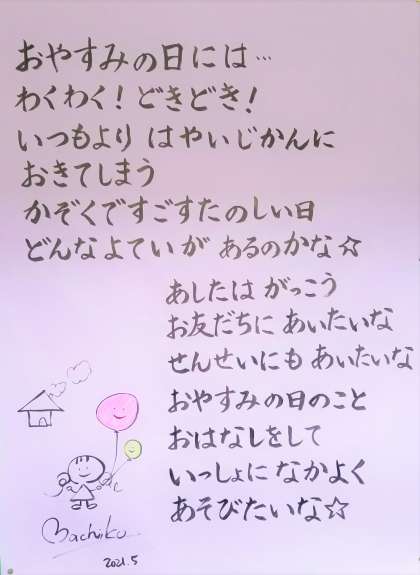 おやすみの日には…
わくわく！どきどき！
いつもより はやいじかんに
おきてしまう
かぞくですごすたのしい日
どんなよていが あるのかな☆
あしたは がっこう
お友だちに あいたいな
せんせいにも あいたいな
おやすみの日のこと
おはなしをして
いっしょに なかよく
あそびたいな☆
Machiko
2021.5